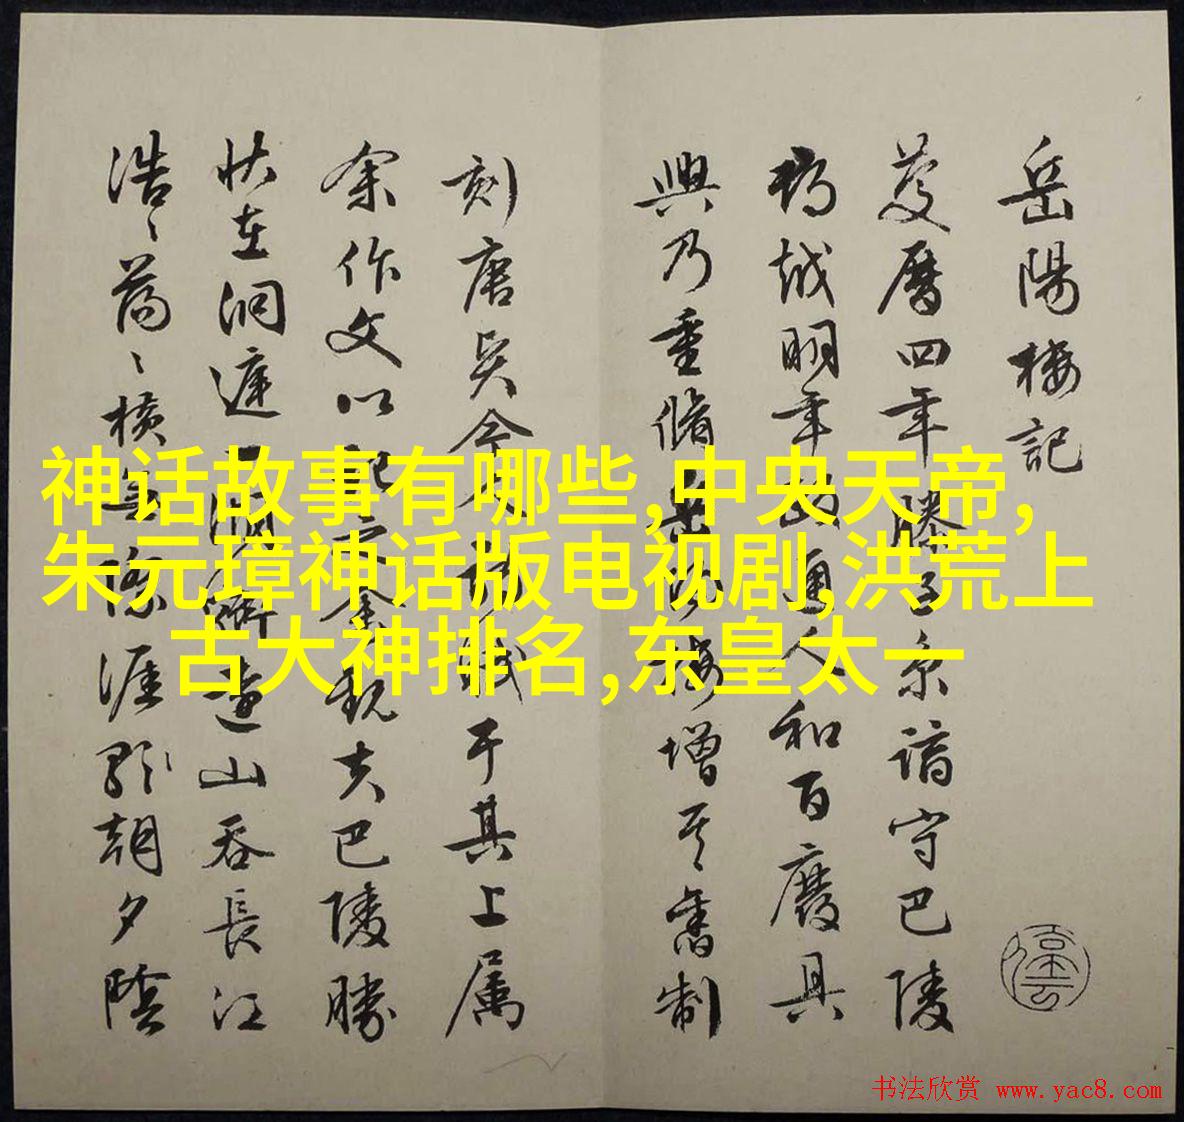 岳陽樓記
慶曆四年滕子京謫守巴陵
郡越明年政通人和百廢具
興乃重脩岳陽樓增其舊制
刻唐賢今人詩賦于其上屬
余作文以記之余觀夫巴陵勝
狀在洞庭一湖銜遠山吞長江
浩〻蕩〻橫無際涯朝夕陰
神话故事有哪些,中央天帝,
朱元璋神话版电视剧,洪荒上
古大神排名,东皇太一
书法欣赏 www.yac8.com